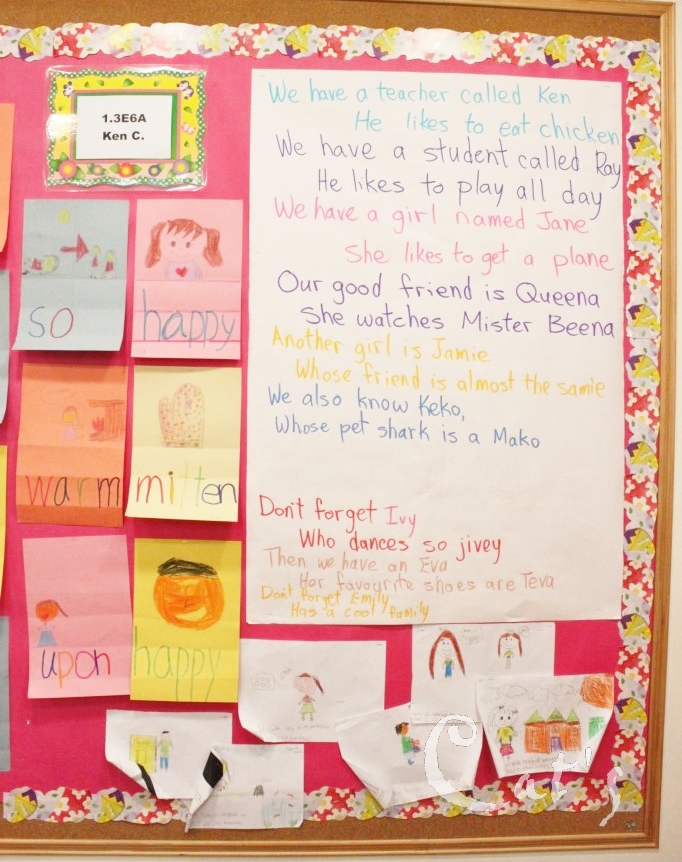 1.3E6A
Ken C.
We have a teacher called Ken
He likes to eat chicken
We have a student called Ray
He likes to play all day
We have a girl named Jane
She likes to get a plane
Our good friend is Queena
She watches Mister Beena
Another girl is Jamie
Whose friend is almost the samie
We also know Keko,
Whose pet shark is a Mako
Don't forget Ivy
Who dances so jivey
Then we have an Eva
Her favourite shoes are Teva
Don't forget Emily
Has a cool family
so
happy
warm
mitten
upon
happy
Cat's